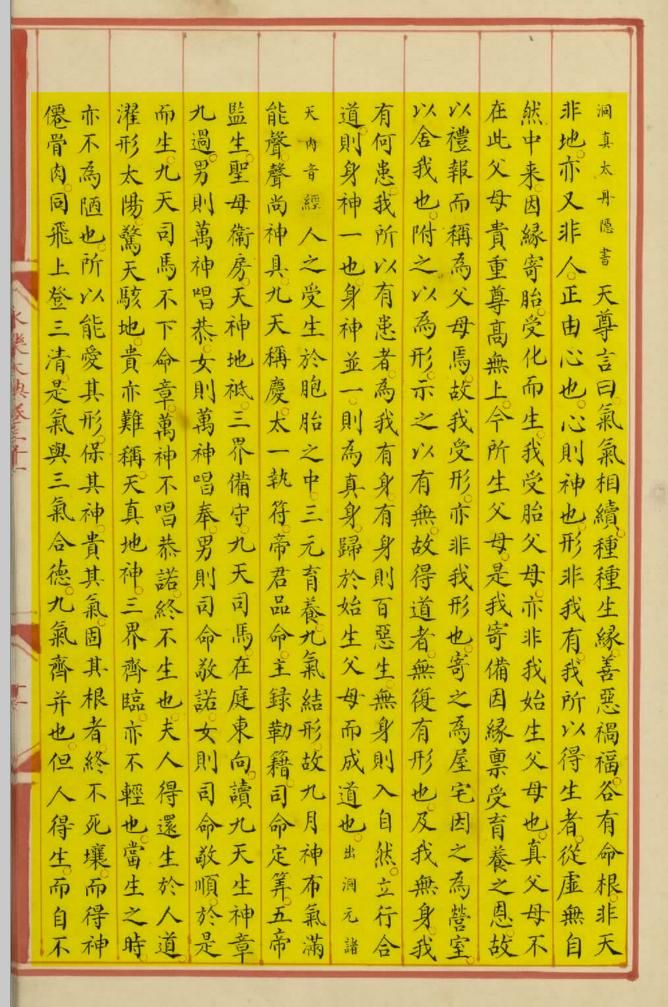 洞真太丹隱書 天尊言曰氣氣相續種種生緣善惡禍福各有命根非天
非地亦又非人正由心也心則神也形非我有我所以得生者從虛無自
然中来因緣寄胎受化而生我受胎父母亦非我始生父母也真父母不
在此父母貴重尊髙無上今所生父母是我寄備因緣禀受育養之恩故
以禮報而稱為父母焉故我受形亦非我形也寄之為屋宅因之為營室
以舍我也附之以為形示之以有無故得道者無復有形也及我無身我
有何患我所以有患者為我有身有身則百惡生無身則入自然立行合
道則身神一也身神並一則為真身歸於始生父母而成道也出洞元諸
天內音經 人之受生於胞胎之中三元育養九氣結形故九月神布氣滿
能聲聲尚神具九天稱慶太一執符帝君品命主錄勒籍司命定筭五帝
監生聖母衛房天神地祇三界備守九天司馬在庭東向讀九天生神章
九過男則萬神唱恭女則萬神唱奉男則司命敬諾女則司命敬順於是
而生九天司馬不下命章萬神不唱恭諾終不生也夫人得還生於人道
濯形太陽驚天駭地貴亦難稱天真地神三界齊臨亦不輕也當生之時
亦不為陋也所以能愛其形保其神貴其氣固其根者終不死壞而得神
僊骨肉同飛上登三清是氣與三氣合德九氣齊并也但人得生而自不